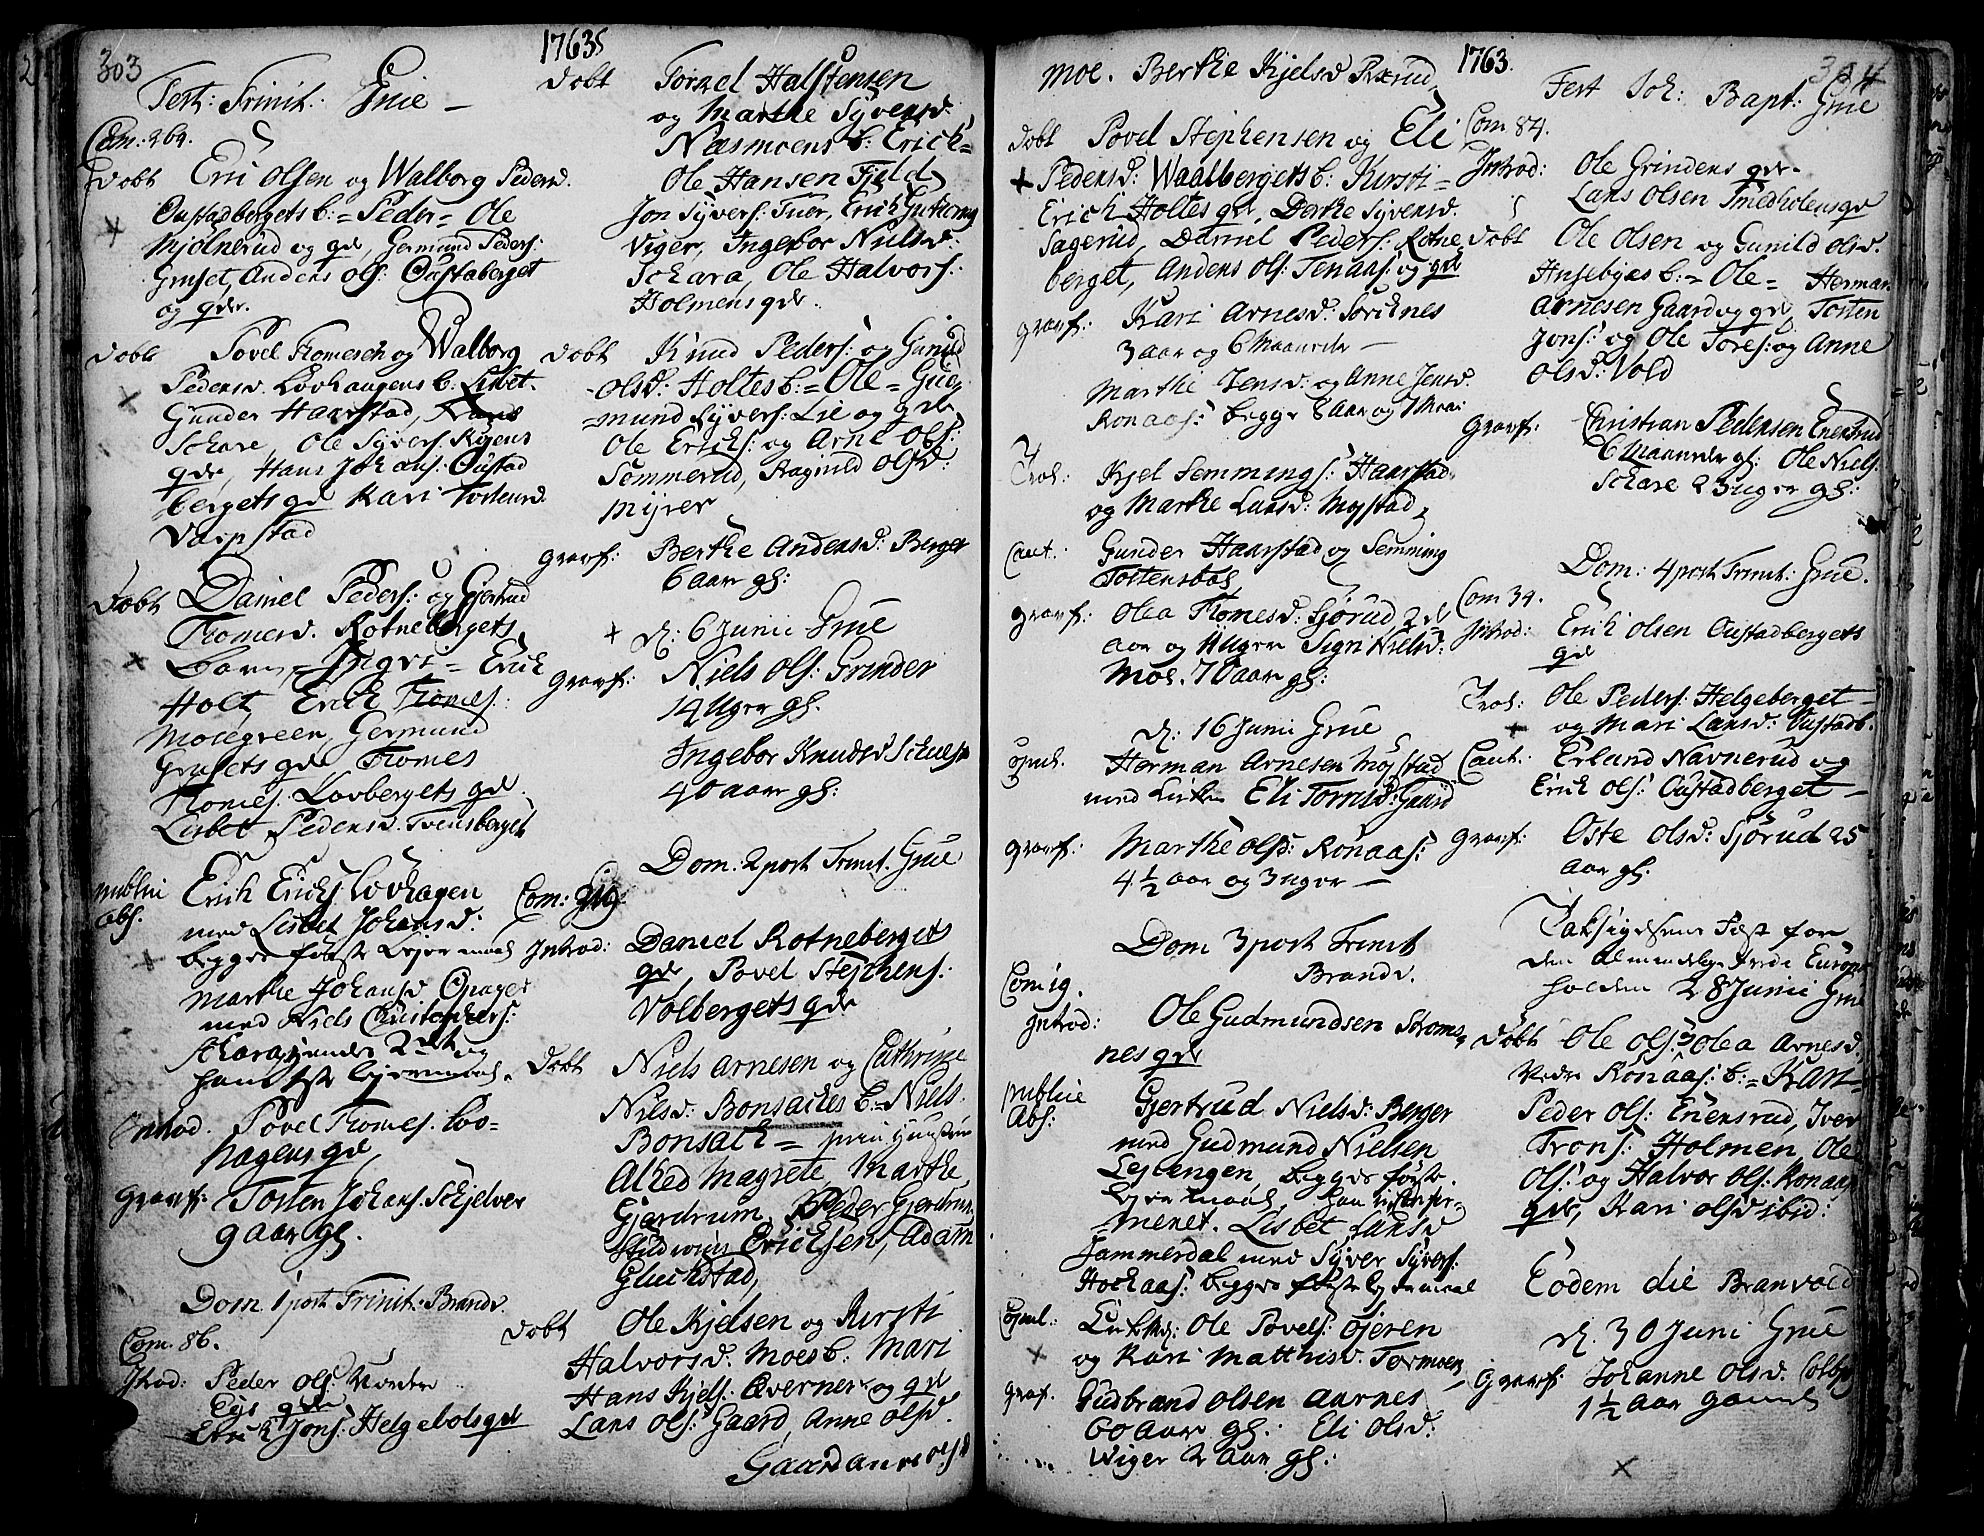 303
1763
Fest: Trinit: Grue
Com: 264.
Døbt Eric Olsen og Walborg Pedersd.
Oustadbergets b: = Peder = Ole
Mjølnerud og qde, Germund Peders:
Grøset, Anders Ols: Oustaberget
og qde.
Døbt Povel Thomesen og Walborg
Pedersd. Lovhaugens b: Lisbet.
Gunder Haarstad,
Schare, Ole Syvers:
qde, Hans Johans: Oustad
bergets qde Kari Tostensd.
Varpstad
Døbt Daniel Peders: og Gjertrud
Thomesd. Rotnebergets
Barn = Ingri = Erich
Holt, Erich Thomes:
Moegreen, Germund
Grøsets qde Thomes
Thomes: Lovbergets qde.
Lisbet Pedersd. Tvensberget
publice
abs: Erich Erichs: Lovhagen
med Lisbet Johansd:
begges første Lejermaal
Marthe Johansd
med Niels Christophers:
Schara, hendes 2det og
hans 1ste Lejermaal.
Introd. Povel Thomes: Lov=
hagens qde,
Gravf: Tosten Johans: Schjelver
9 aar gl.
Dom. 1 post Trinit: Brandv.
Com. 86.
Introd: Peder Ols:
qde
Erich Jons: Helgebols qde
Døbt Torkel Halstensen
og Marthe Syversd.
Næsmoens b: Erich=
Ole Hansen Fjeld
Jon Syvers: Tuer, Erich Guttorms
Viger, Ingebor Nielsd:
Schara, Ole Halvors:
Holmens qde.
Døbt Knud Peders: og Gunild
Olsd: Holtes b: = Ole = Gud=
mund Syvers: Lie og qde
Ole Erichs: og Arne Ols:
Sømmerud, Ragnild Olsd:
Myrer
Gravf: Berthe Andersd: Berger
6 aar gl:
d: 6 Junii Grue
Gravf: Niels Ols: Grinder
14 Uger gl.
Ingebor Knudsd
40 aar gl:
Dom: 2 post Trinit. Grue
Com:
Introd: Daniel Rotneberget
qde, Povel Stephens:
Volbergets qde
Døbt Niels Arnesen og Cathrine
Nilsd: Bonsaches b: = Niels
Bonsach =
Alhed Magrete, Marthe
Gjerdrum, Peder Gjerdrum
Studiosus Erichsen, Adam
Gluckstad,
Døbt Ole Kjelsen og Kursti
Halvorsd: Moes b: Mari
Hans Kjels: Overner og qde
Lars Ols: Gaard, Anne Olsd.
Gaard Anne Olsd
1763.
304
Moe. Berthe Kjelsd Prærud
Døbt Povel Stephensen og Eli
Pedersd: Waalbergets b: Kursti =
Erich Holtes qde, Dorthe Syversd.
Sagerud, Daniel Peders: Rotne
berget, Anders Ols: Tenaas: og qde
Gravf: Kari Arnesd: Sorknes
3 aar og 6 Maaneder
Marthe Jensd: og Anne Jensd.
Rønaas: begge 8 aar og 7 Maa:
Trol: Kjel Semmings: Haarstad
og Marthe Larsd: Møystad
Caut: Gunder Haarstad og Semming
Tostensbøl
Gravf: Olea Thomesd: Sjørud 2
aar og 11 Uger Sigri Nielsd:
Moe. 70 aar gl:
d: 16 Junii Grue
Copul. Herman Arnesen Møystad
med Eli Torrisd: Gaard
Gravf: Marthe Olsd: Rønaas:
4 1/2 aar og 3 uger
Dom 3 post Trinit
Brandv.
Com 19.
Introd: Ole Gudmundsen Strøms=
nes qde
publice
Abs: Gjertrud Nielsd: Berger
med Gudmund Nielsen
begges første
Lejermaal
Lisbet Larsd
Jammerdal med Syver Syvers:
Hochaas: begges første Lejermaal
Copul: Ole Povels: Øjeren
og Kari Matthisd: Tørmoen
Graf. Gudbrand Olsen Aarnes
60 aar gl: Eli Olsd:
Wiger 2 aar gl:
Fest Joh: Bapt: Grue
Com 84.
Introd: Ole Grindens qde.
Lars Olsen Smedholens qde
Døbt Ole Olsen og Gunild Olsd.
Husebyes b: = Ole = Herman
Arnesen Gaard og qde, Tosten
Jons: og Ole Tores: og Anne
Olsd: Vold
Gravf: Christian Pedersen Enersrud
6 Maaneder gl: Ole Niels:
Schare 23 uger gl:
Dom: 4 post Trinit: Grue.
Com 34.
Introd: Erich Olsen Oustadbergets
qde
Trol: Ole Peders: Helgeberget
og Mari Larsd: Oustadb.
Caut: Erland Navnerud og
Erich Ols: Oustadberget
Gravf: Oste Olsd: Sjørud 25
aar gl.
Taksigelsens Fest for
den almindelige Frede Europa
holden 28 Junii Grue
Døbt Ole Ols: Olea Arnesd.
Rønaas: b: = Kari
Peder Ols: Enersrud, Iver
Trons: Holmen, Ole
Ols: og Halvor Ols: Rønaas
qde, Kari Olsd ibid:
Eodem die Branvold
d. 30 Juni Grue
Gravf: Johanne Olsd.
1 1/2 aar gaml